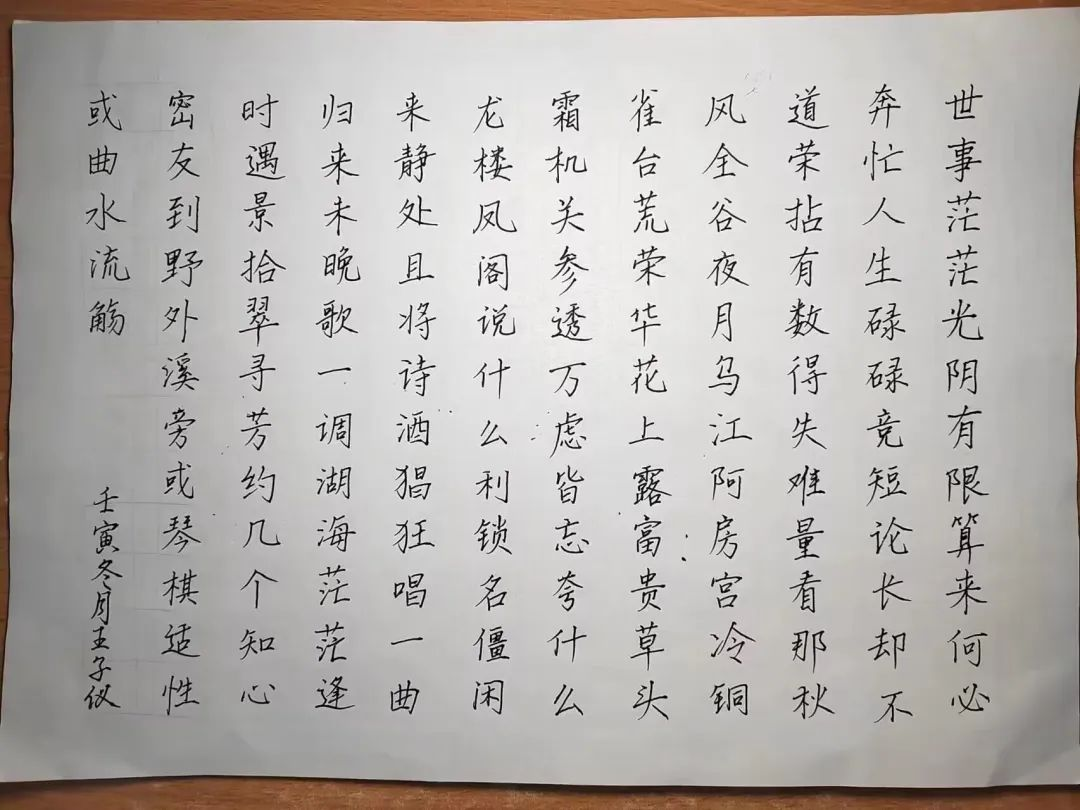 世事茫茫光阴有限算来何必
奔忙人生碌碌竞短论长却不
道荣拈有数得失难量看那秋
风全谷夜月乌江阿房宫冷铜
雀台荒荣华花上露富贵草头
霜机关参透万虑皆忘夸什么
龙楼凤阁说什么利锁名僵闲
来静处且将诗酒猖狂唱一曲
归来未晚歌一调湖海茫茫逢
时遇景拾翠寻芳约几个知心
密友到野外溪旁或琴棋适性
或曲水流觞
壬寅冬月王子仪